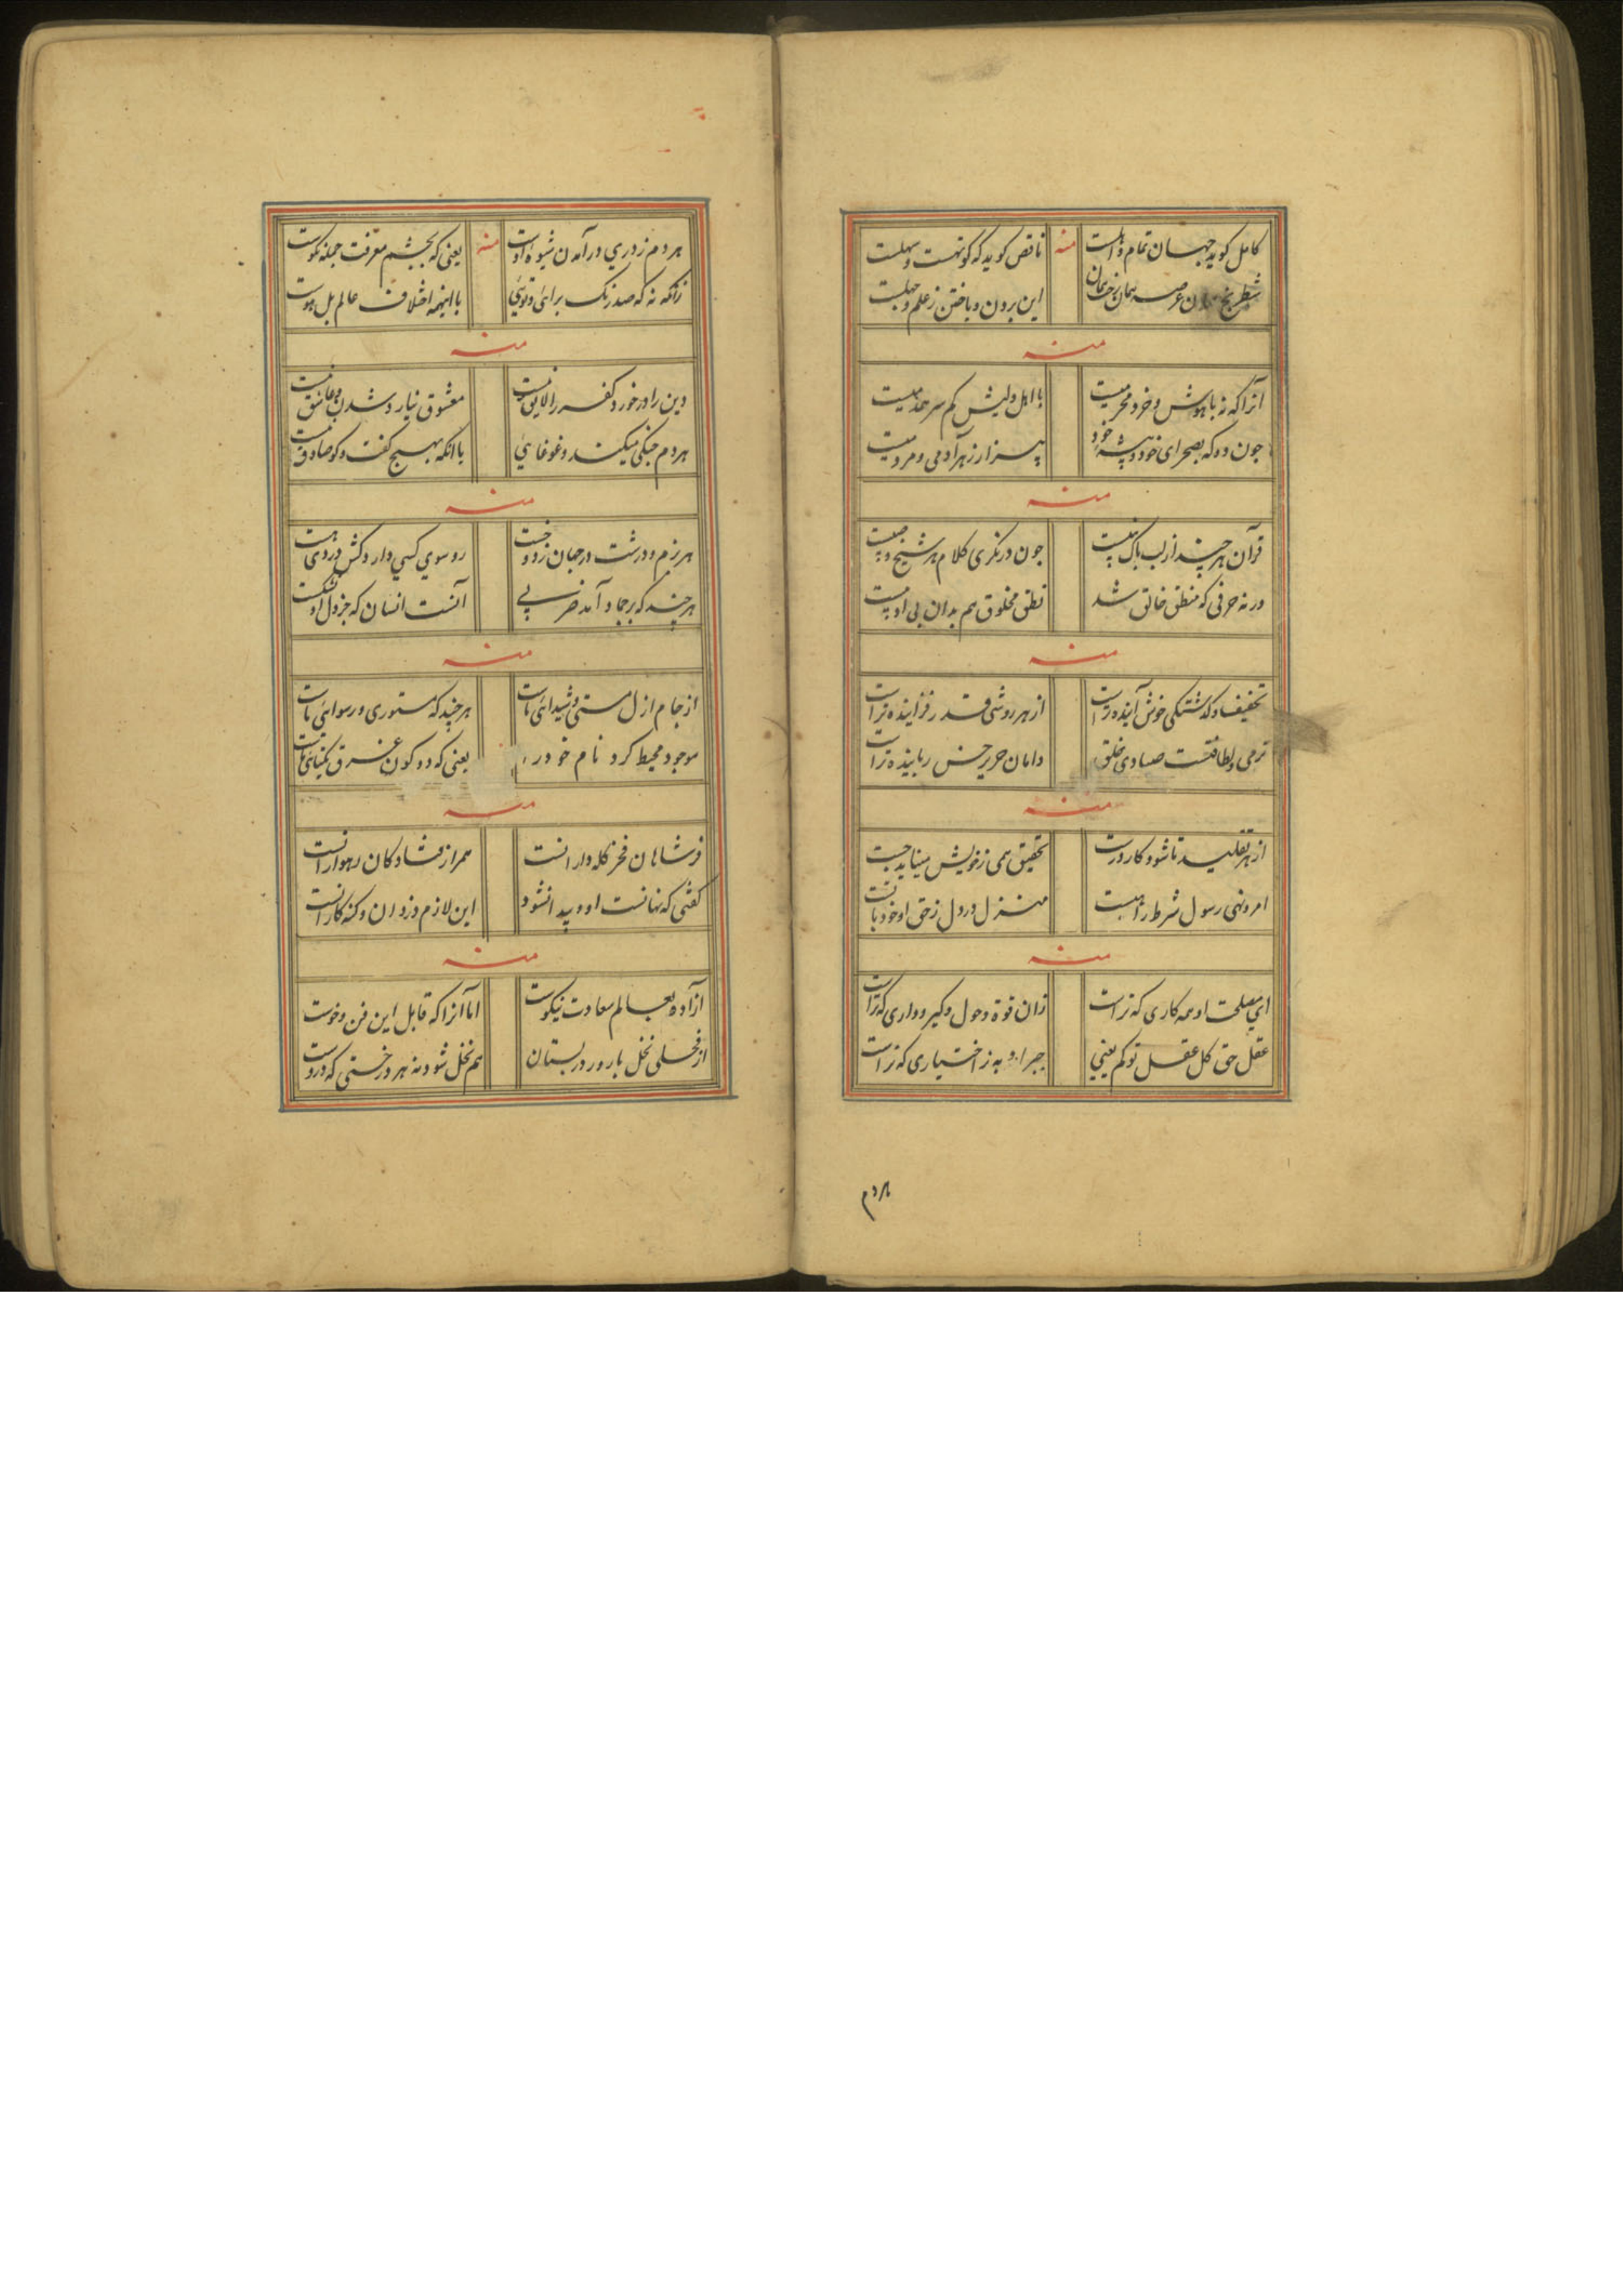 کامل کوید جهان تمام و اهلست منه ناقص کوید که کوتهست و سهلست
شطرنج همان عرصه همان رخ همان این بردن و باختن ز علم و جهلست
منه
آنرا که نه با هوش و خرد محرمیست با اهل دلیش کم سر همدمیست
چون دد که بصحرای خود و بیشهٔ خود بیزار ز هر آدمی و مردمیست
منه
قرآن هر چند از لب پاک نبیست چون درنکری کلام هر شیخ و صبیست
ورنه حرفی که منطق خالق شد نطق مخلوق هم بدان بی ادبیست
منه
تخفیف و کذشتکی خوش آینده تراست از هر روشی قدر فزاینده تراست
نرمی و لطافتست صیادی خلق دامان حریر خس رباینده تراست
منه
از هر تقلید تا شود کار درست تحقیق همی ز خویش میباید جست
امر و نهی رسول شرط راهست منزل در دل ز حق او خود با تست
منه
ای مصلحت او همه کاری که تراست زان قوة و حول و کیر و داری که تراست
عقل حق کل عقل تو کم یعنی جبر او به ز اختیاری که تراست
هر دم
هر دم ز دری درآمدن شیوهٔ اوست منه یعنی که بچشم معرفت جمله نکوست
زانکه نه که صد رنک برائی و توئی با اینهمه اختلاف عالم بل هوست
منه
دین را در خورد کفر را لایق نیست معشوق نیارد شدن و عاشق نیست
هر دم جنکی میکند و غوغایی با آنکه بهیچ کفت و کو صادق نیست
منه
هر نرم و درشت در جهان زد و خست رو سوی کسی دارد کش دردی هست
هر چند که بر جماد آمد ضربی آنست انسان که جز دل او نشکست
منه
از جام ازل مستی و شیدائی ماست هر چند که مستوری و رسوائی ماست
موجود محیط کرد نام خود را یعنی که دو کون غرق یکتائی ماست
منه
فر شاهان فخر کله دارانست همراز فتادکان رهوارانست
کفتی که نهانست او و پیدا نشود این لازم دزدان و کنه کارانست
منه
آزاده بعالم سعادت نیکوست اما آنرا که قابل این فن و خوست
از فحلی نخل بارور در بستان هم نخل شود نه هر درختی که دروست